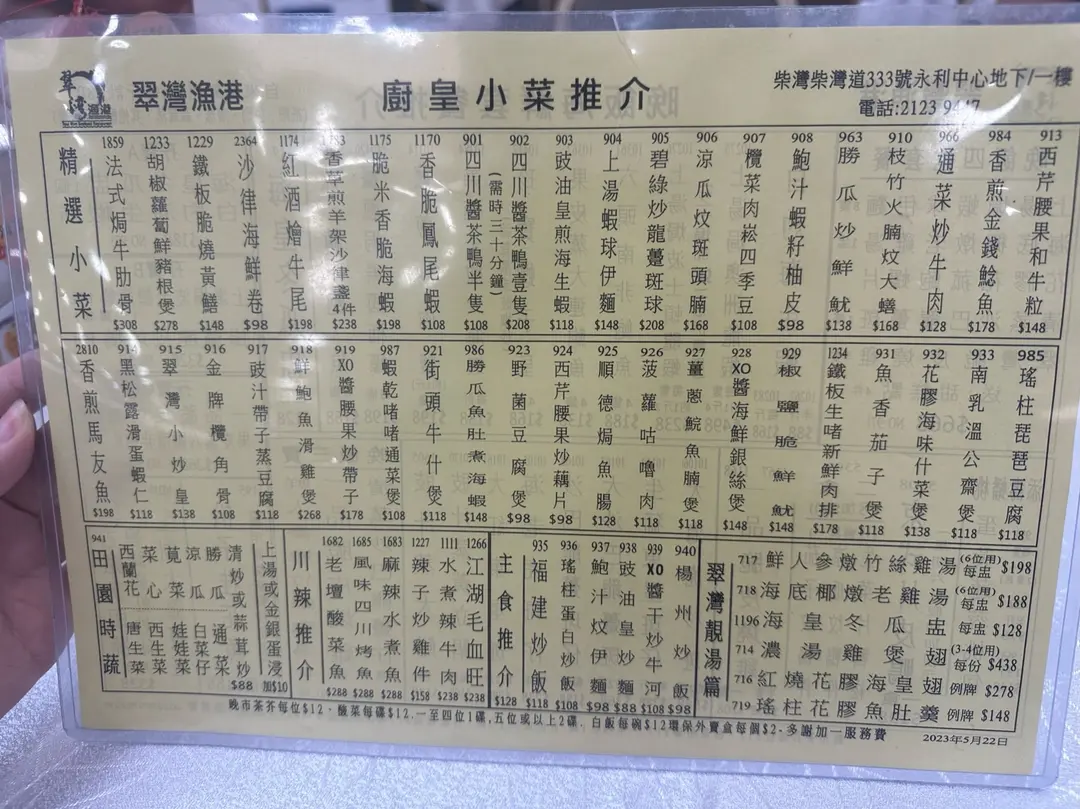 翠灣漁港
廚皇小菜推介
柴灣柴灣道333號永利中心地下/一樓
電話:2123 9447
精選小菜
1859 法式焗牛肋骨 $308
1233 胡椒蘿蔔鮮豬根煲 $278
1229 鐵板脆燒黃鱔 $148
2364 沙律海鮮卷 $98
1174 紅酒燴牛尾 $198
香草煎羊架沙律盞4件 $238
1175 脆米香脆海蝦 $198
1170 香脆鳳尾蝦 $108
901 四川醬茶鴨半隻 $108
(需時三十分鐘)
902 四川醬茶鴨壹隻 $208
903 豉油皇煎海生蝦 $118
904 上湯蝦球伊麵 $148
905 碧綠炒龍躉斑球 $208
906 涼瓜炆斑頭腩 $168
907 欖菜肉崧四季豆 $108
908 鮑汁蝦籽柚皮 $98
963 勝瓜炒鮮魷 $138
910 枝竹火腩炆大鱔 $168
966 通菜炒牛肉 $128
984 香煎金錢鯰魚 $178
913 西芹腰果和牛粒 $148
2810 香煎馬友魚 $198
914 黑松露滑蛋蝦仁 $118
915 翠灣小炒皇 $138
916 金牌欖角骨 $108
917 豉汁帶子蒸豆腐 $118
918 鮮鮑魚滑雞煲 $268
919 XO醬腰果炒帶子 $178
987 蝦乾啫啫通菜煲 $108
921 街頭牛什煲 $118
986 勝瓜魚肚煮海蝦 $148
923 野菌豆腐煲 $98
924 西芹腰果炒藕片 $98
925 順德焗魚腸 $128
926 菠蘿咕嚕肉 $118
927 薑蔥鯇魚腩煲 $118
928 XO醬海鮮銀絲煲 $148
929 椒鹽脆鮮魷 $148
1234 鐵板生啫新鮮肉排 $178
931 魚香茄子煲 $118
932 花膠海味什菜煲 $138
933 南乳溫公齋煲 $118
985 瑤柱琵琶豆腐 $118
941 田園時蔬
西蘭花 唐生菜
菜心 西生菜
莧菜 娃娃菜
涼瓜 白菜仔
勝瓜 通菜
清炒或蒜茸炒 $88
上湯或金銀蛋浸 加$10
川辣推介
1682 老壇酸菜魚 $288
1685 風味四川烤魚 $288
1683 麻辣水煮魚 $288
1227 辣子炒雞件 $158
1111 水煮辣牛肉 $238
1266 江湖毛血旺 $238
主食推介 $128
935 福建炒飯 $118
936 瑤柱蛋白炒飯 $108
937 鮑汁炆伊麵 $98
938 豉油皇炒麵 $88
939 XO醬干炒牛河 $108
940 楊州炒飯 $98
翠灣靚湯篇
717 鮮人參燉竹絲雞湯 (6位用) 每盅 $198
718 海底椰燉老雞湯 (6位用) 每盅 $188
1196 海皇冬瓜盅 每盅 $128
714 濃湯雞煲翅 (3-4位用) 每份 $438
716 紅燒花膠海皇翅 例牌 $278
719 瑤柱花膠魚肚羹 例牌 $148
晚市茶芥每位$12，酸菜每碟$12.一至四位1碟,五位或以上2碟. 白飯每碗$12環保外賣盒每個$2-多謝加一服務費
2023年5月22日